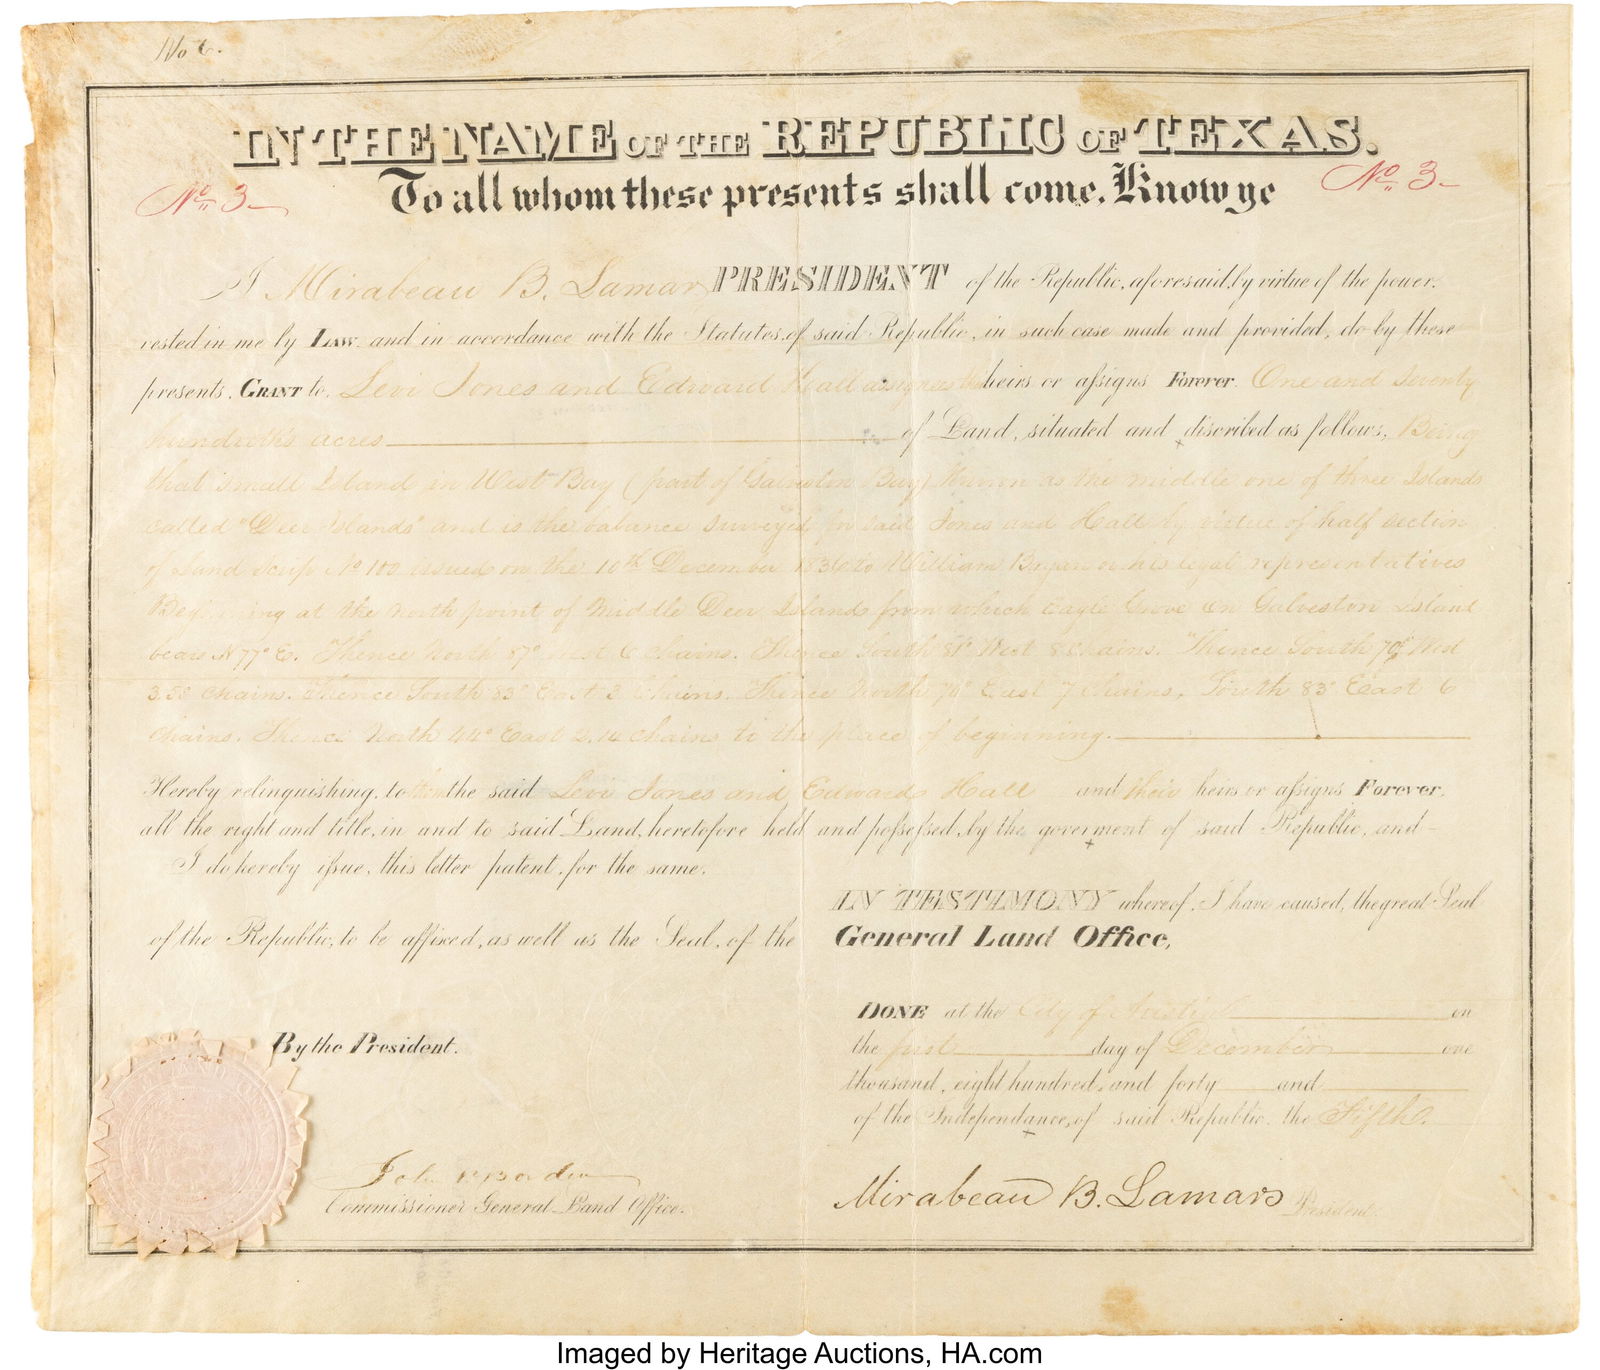 No 6.
IN THE NAME OF THE REPUBLIC OF TEXAS.
No. 3 No. 3
To all whom these presents shall come. Know ye
I Mirabeau B. Lamar PRESIDENT of the Republic, aforesaid, by virtue of the power,
vested in me by LAW and in accordance with the Statutes, of said Republic, in such case made and provided, do by these
presents, GRANT to, Levi Jones and Edward Hall assignees their heirs or assigns Forever. One and seventy
hundreths acres of Land, situated and discribed as follows, Being
that small Island in West Bay (part of Galveston Bay) Known as the middle one of three Islands
called "Deer Islands" and is the balance surveyed for said Jones and Hall by virtue of half section
of Land Scrip No 100 issued on the 10th December 1836 to William Bryan or his legal representatives
Beginning at the north point of Middle Deer Islands from which Eagle Grove on Galveston Island
bears N 77° E. Thence North 87° West 6 chains. Thence South 81° West 8 Chains. Thence South 70° West
3.58 chains. Thence South 83° East 3 Chains. Thence North 70° East 7 Chains, South 83° East 6
chains. Thence North 44° East 2.14 chains to the place of beginning.
Hereby relinquishing, to them the said Levi Jones and Edward Hall and their heirs or assigns Forever,
all the right and title, in and to said Land, heretofore held and possessed, by the goverment of said Republic, and
I do hereby issue, this letter patent, for the same.
IN TESTIMONY whereof, I have caused, the great Seal
of the Republic, to be affixed, as well as the Seal, of the General Land Office,
DONE at the City of Austin on
the first day of December one
thousand, eight hundred, and forty and
of the Independance, of said Republic. the Fifth.
By the President.
John P. Borden
Commissioner General Land Office.
Mirabeau B. Lamar
President.
Imaged by Heritage Auctions, HA.com